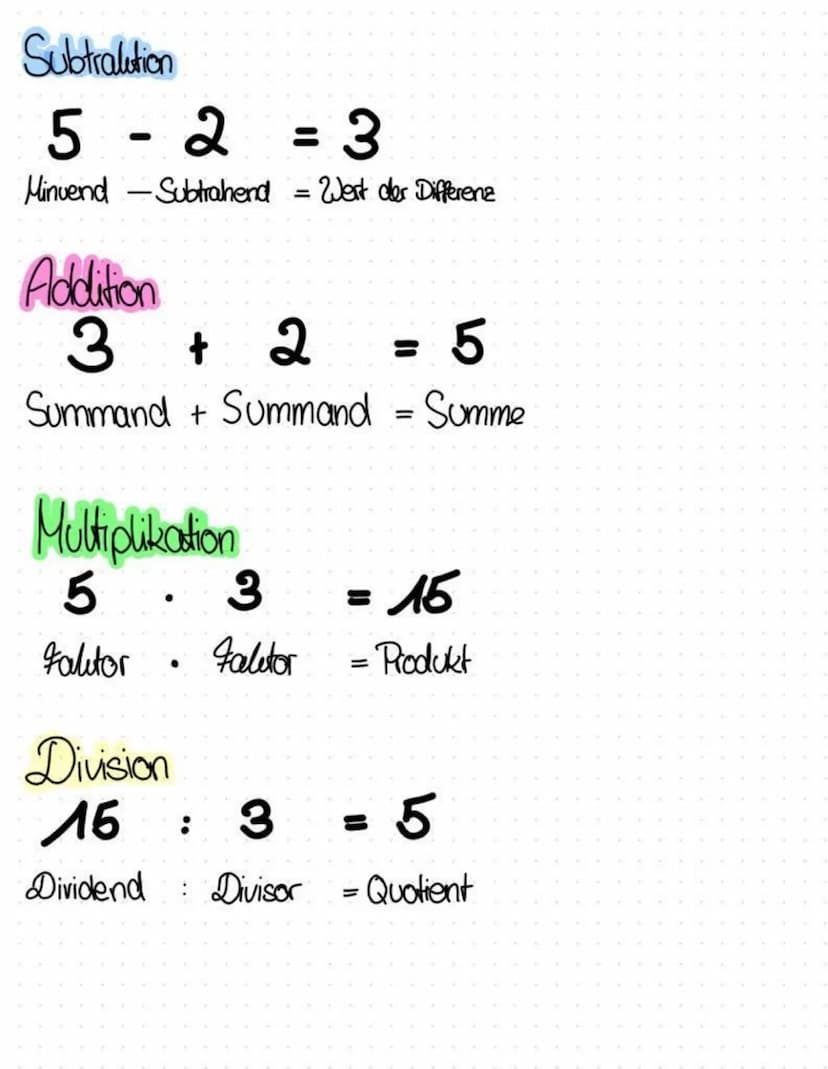 Subtraktion
5 - 2 = 3
Minuend - Subtrahend = Wert der Differenz
Addition
3 + 2 = 5
Summand + Summand = Summe
Multiplikation
5 · 3 = 15
Faktor · Faktor = Produkt
Division
15 : 3 = 5
Dividend : Divisor = Quotient